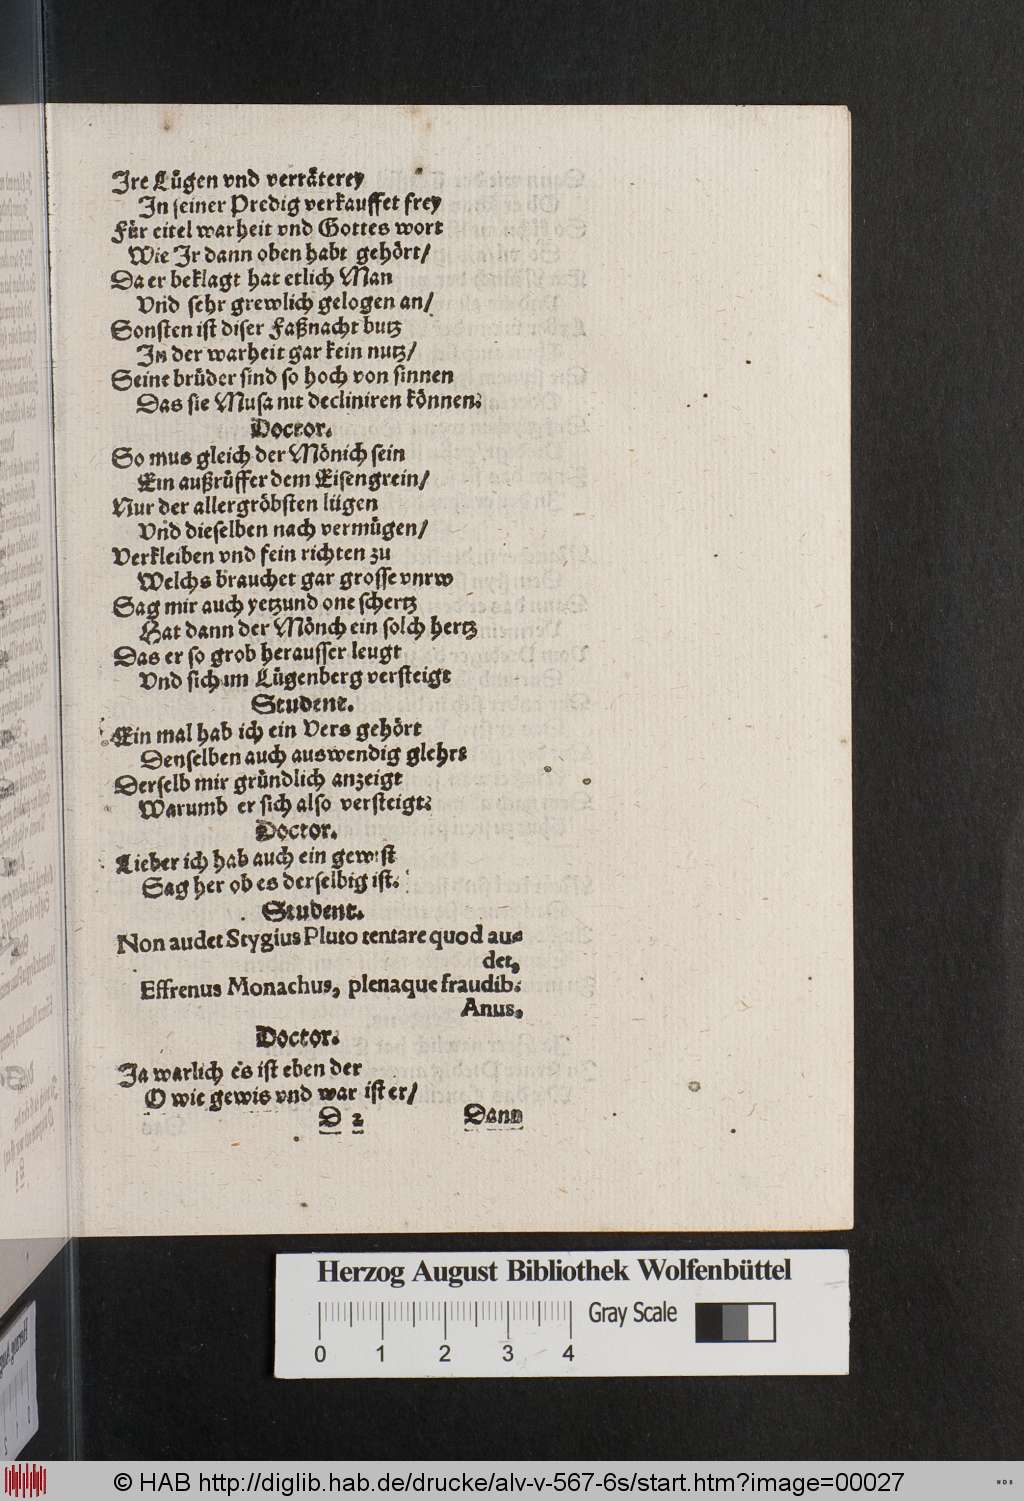 Jre Lügen vnd verräterey
In seiner Predig verkauffet frey
Für eitel warheit vnd Gottes wort
Wie Jr dann oben habt gehört/
Da er beklagt hat etlich Man
Vnd sehr grewlich gelogen an/
Sonsten ist diser Faßnacht butz
In der warheit gar kein nutz/
Seine brüder sind so hoch von sinnen
Das sie Musa nit decliniren können.
Doctor.
So mus gleich der Mönich sein
Ein außrüffer dem Eisengrein/
Nur der allergröbsten lügen
Vnd dieselben nach vermügen/
Verkleiben vnd fein richten zu
Welchs brauchet gar grosse vnrw
Sag mir auch yetzund one schertz
Hat dann der Mönch ein solch hertz
Das er so grob herausser leugt
Vnd sich im Lügenberg versteigt
Student.
Ein mal hab ich ein Vers gehört
Denselben auch auswendig glehrt
Derselb mir gründlich anzeigt
Warumb er sich also versteigt.
Doctor.
Lieber ich hab auch ein gewist
Sag her ob es derselbig ist.
Student.
Non audet Stygius Pluto tentare quod au-
det,
Effrenus Monachus, plenaque fraudib.
Anus,
Doctor.
Ja warlich es ist eben der
O wie gewis vnd war ist er/
D 2 Dann
Herzog August Bibliothek Wolfenbüttel
Gray Scale
0 1 2 3 4
© HAB http://diglib.hab.de/drucke/alv-v-567-6s/start.htm?image=00027